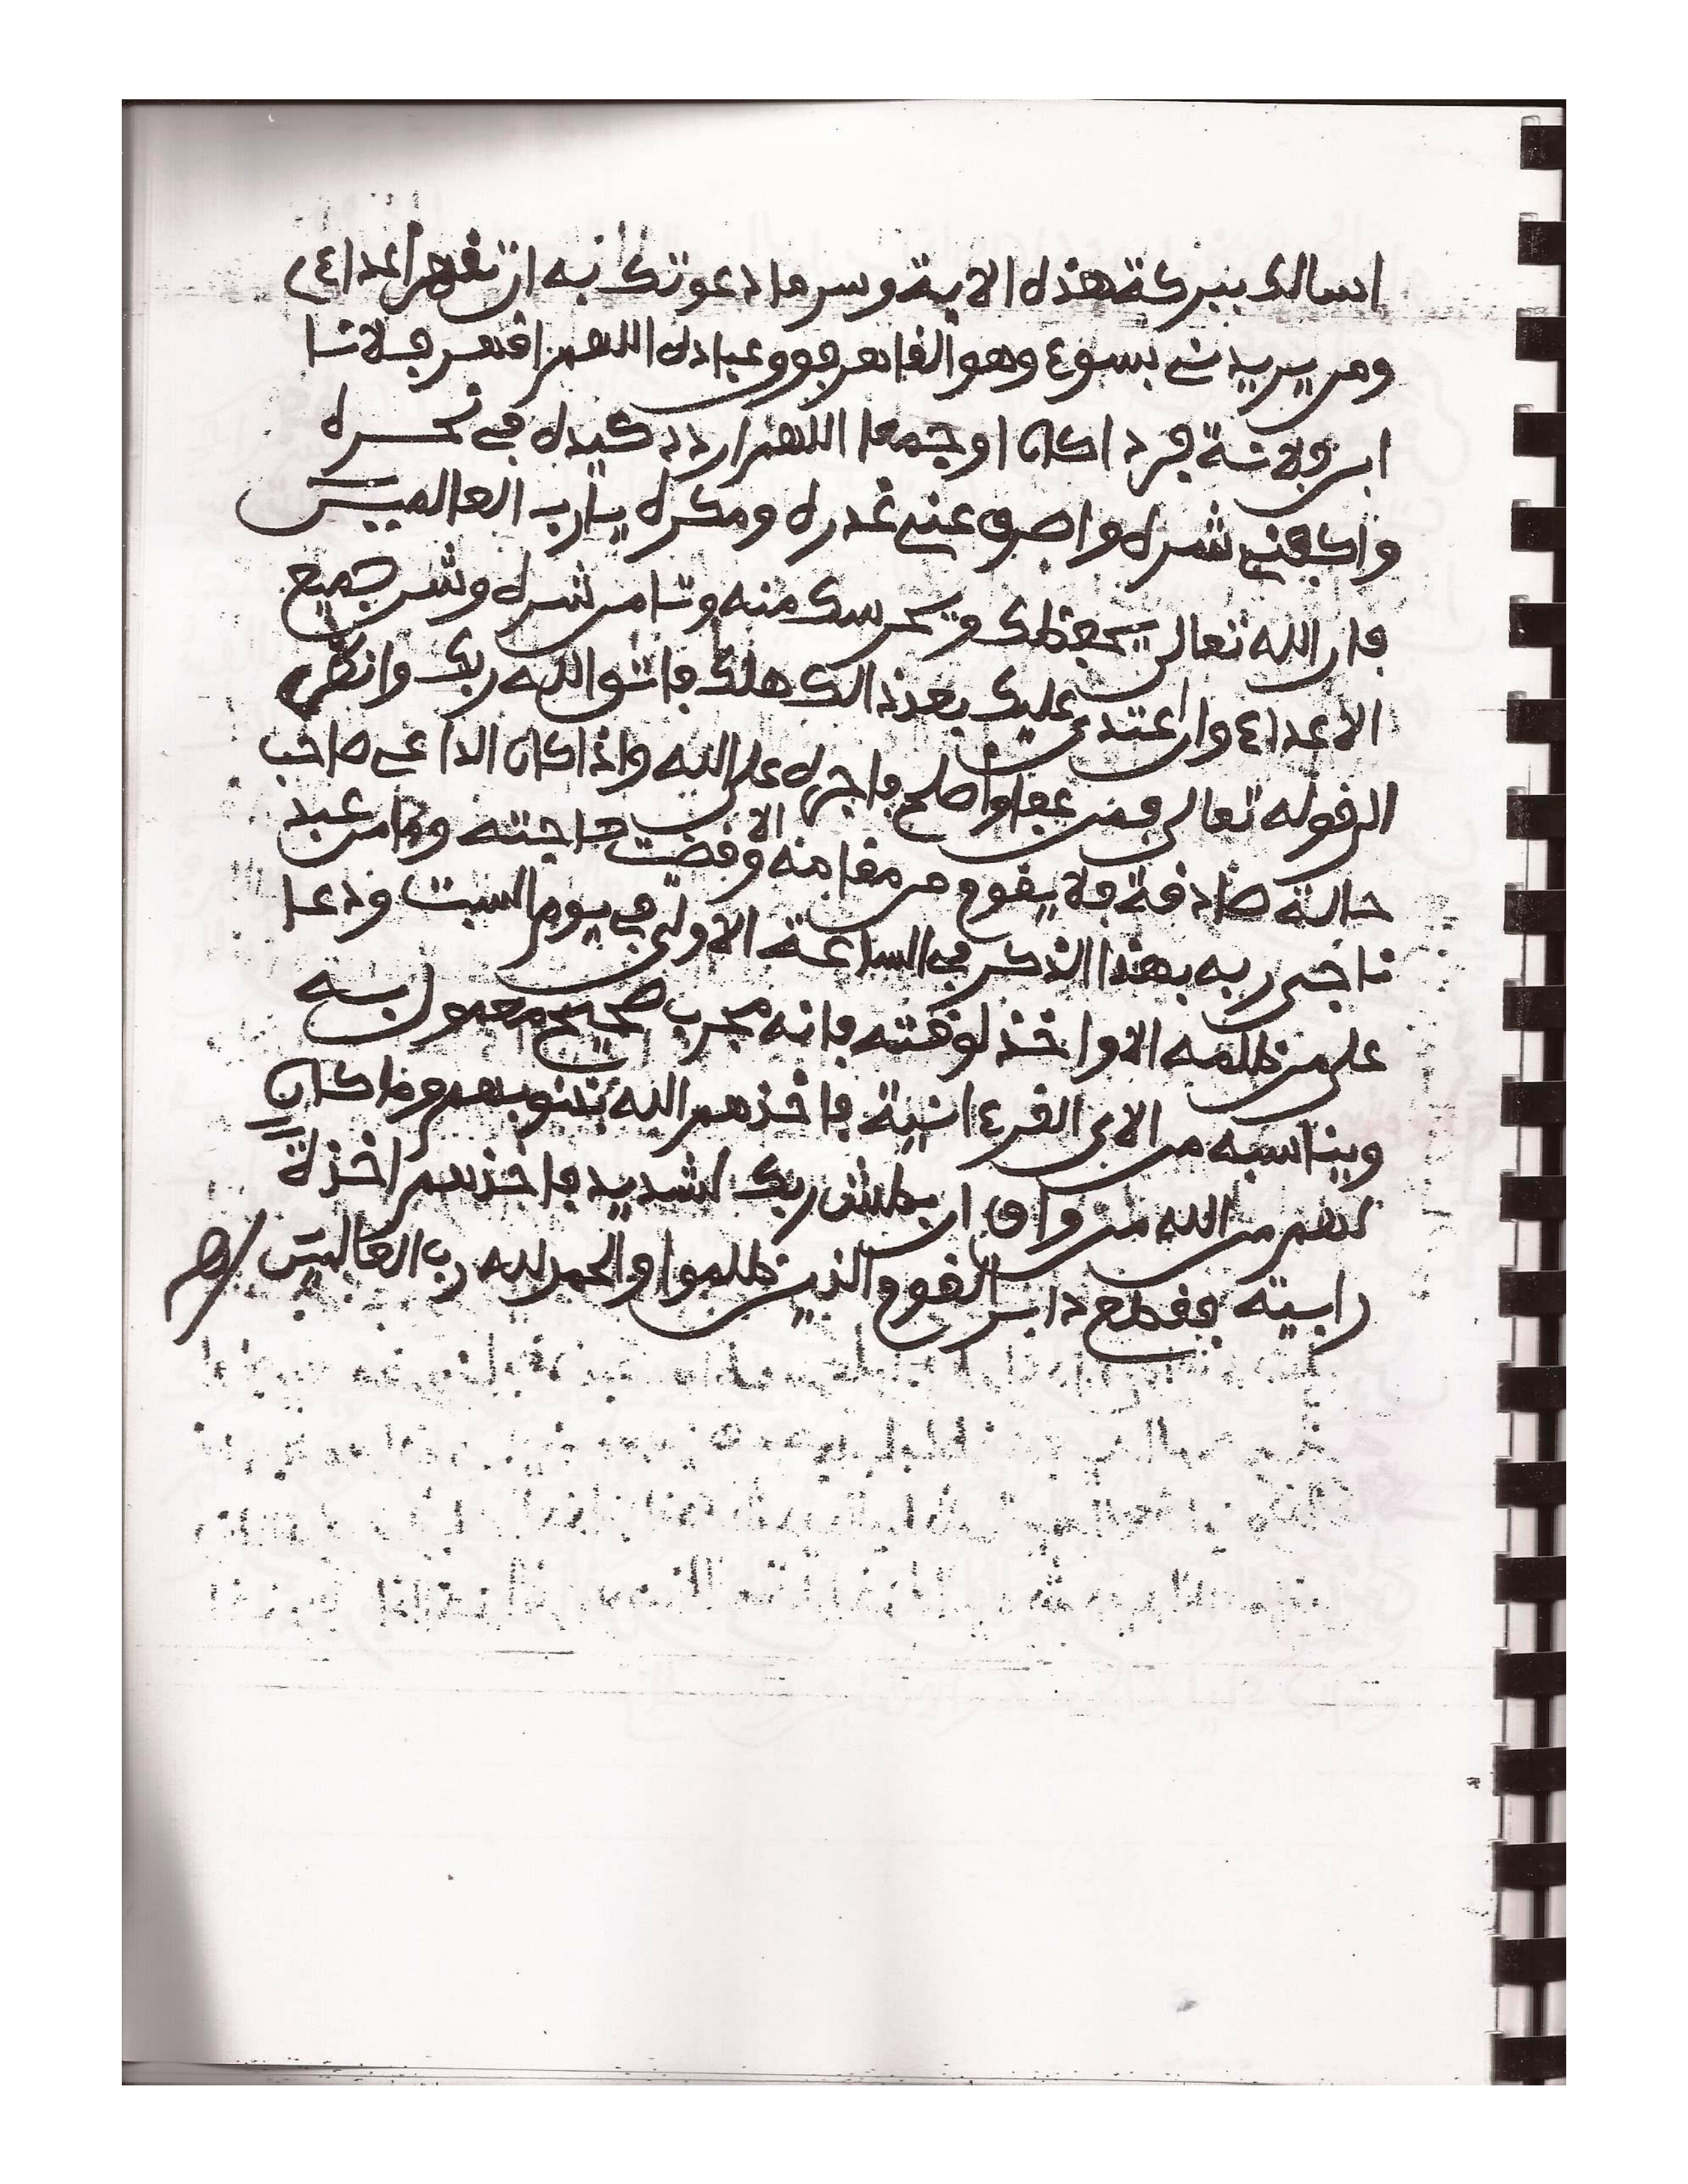 اسالك ببركة هذه الاية وسر ما دعوتك به ان تقهر اعداءي
ومن يريدني بسوء وهو القاهر فوق عباده اللهم اقهر فلانا
ابن فلانة فردا كان او جمعا اللهم اردد كيده في نحره
واكفني شره واصرف عني غدره ومكره يا رب العالمين
فان الله تعالى يحفظك ويحرسك منه وتامن شره وشر جميع
الاعداء وان اعتدى عليك بعد ذالك هلك فاتق الله ربك وانظر
الى قوله تعالى فمن عفا واصلح فاجره على الله واذا كان الداعي صاحب
حالة صادقة فلا يقوم من مقامه الا وقضيت حاجته وما من عبد
ناجى ربه بهذا الذكر في الساعة الاولى في يوم السبت ودعا
على من ظلمه الا واخذ لوقته فانه مجرب صحيح معمول به
ويناسبه من الاي القرءانية فاخذهم الله بذنوبهم وما كان
لهم من الله من واق ان بطش ربك لشديد فاخذهم اخذة
رابية فقطع دابر القوم الذين ظلموا والحمد لله رب العالمين اهـ